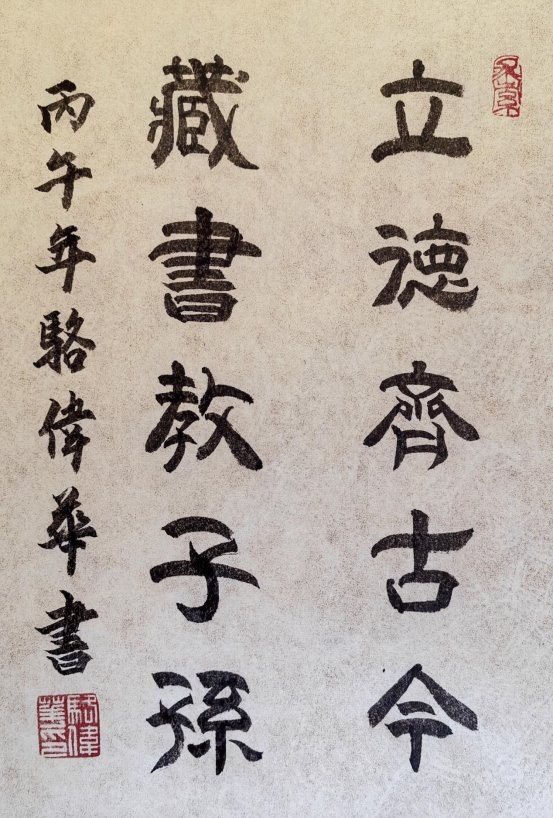 立德齊古今
藏書教子孫
丙午年駱偉華書
駱偉華印